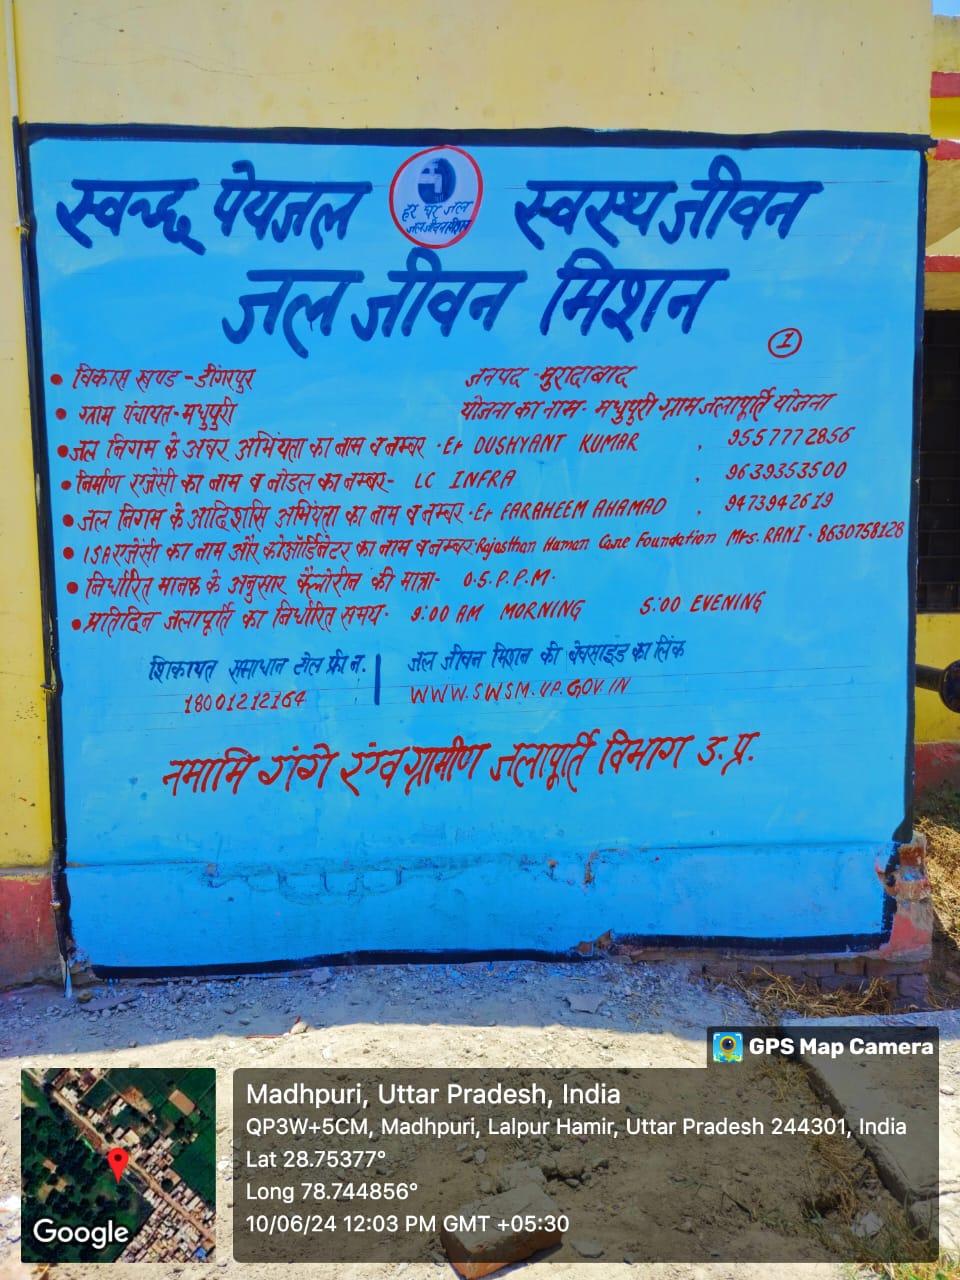 स्वच्छ पेयजल
हर घर जल
जल जीवन मिशन
स्वस्थ जीवन
जल जीवन मिशन
1
• विकास खण्ड - डींगरपुर जनपद - मुरादाबाद
• ग्राम पंचायत - मधुपुरी योजना का नाम - मधुपुरी ग्राम जलापूर्ति योजना
• जल निगम के अबर अभियंता का नाम व नम्बर - Er DUSHYANT KUMAR , 9557772856
• निर्माण एजेंसी का नाम व नोडल का नम्बर - LC INFRA , 9639353500
• जल निगम के आदिशासि अभियंता का नाम व नम्बर - Er FARAHEEM AHAMAD , 9473942619
• ISA एजेंसी का नाम और कोऑर्डिनेटर का नाम व नम्बर Rajasthan Human Cane Foundation Mrs. RANI - 8630758128
• निर्धारित मानक के अनुसार क्लोरीन की मात्रा - 0.5. P.P.M.
• प्रतिदिन जलापूर्ति का निर्धारित समय - 9:00 AM MORNING 5:00 EVENING
शिकायत समाधान टोल फ्री न. | जल जीवन मिशन की वेबसाइड का लिंक
18001212164 WWW.SWSM.UP.GOV.IN
नमामि गंगे एंव ग्रामीण जलापूर्ति विभाग उ.प्र.
GPS Map Camera
Madhpuri, Uttar Pradesh, India
QP3W+5CM, Madhpuri, Lalpur Hamir, Uttar Pradesh 244301, India
Lat 28.75377°
Long 78.744856°
10/06/24 12:03 PM GMT +05:30
Google